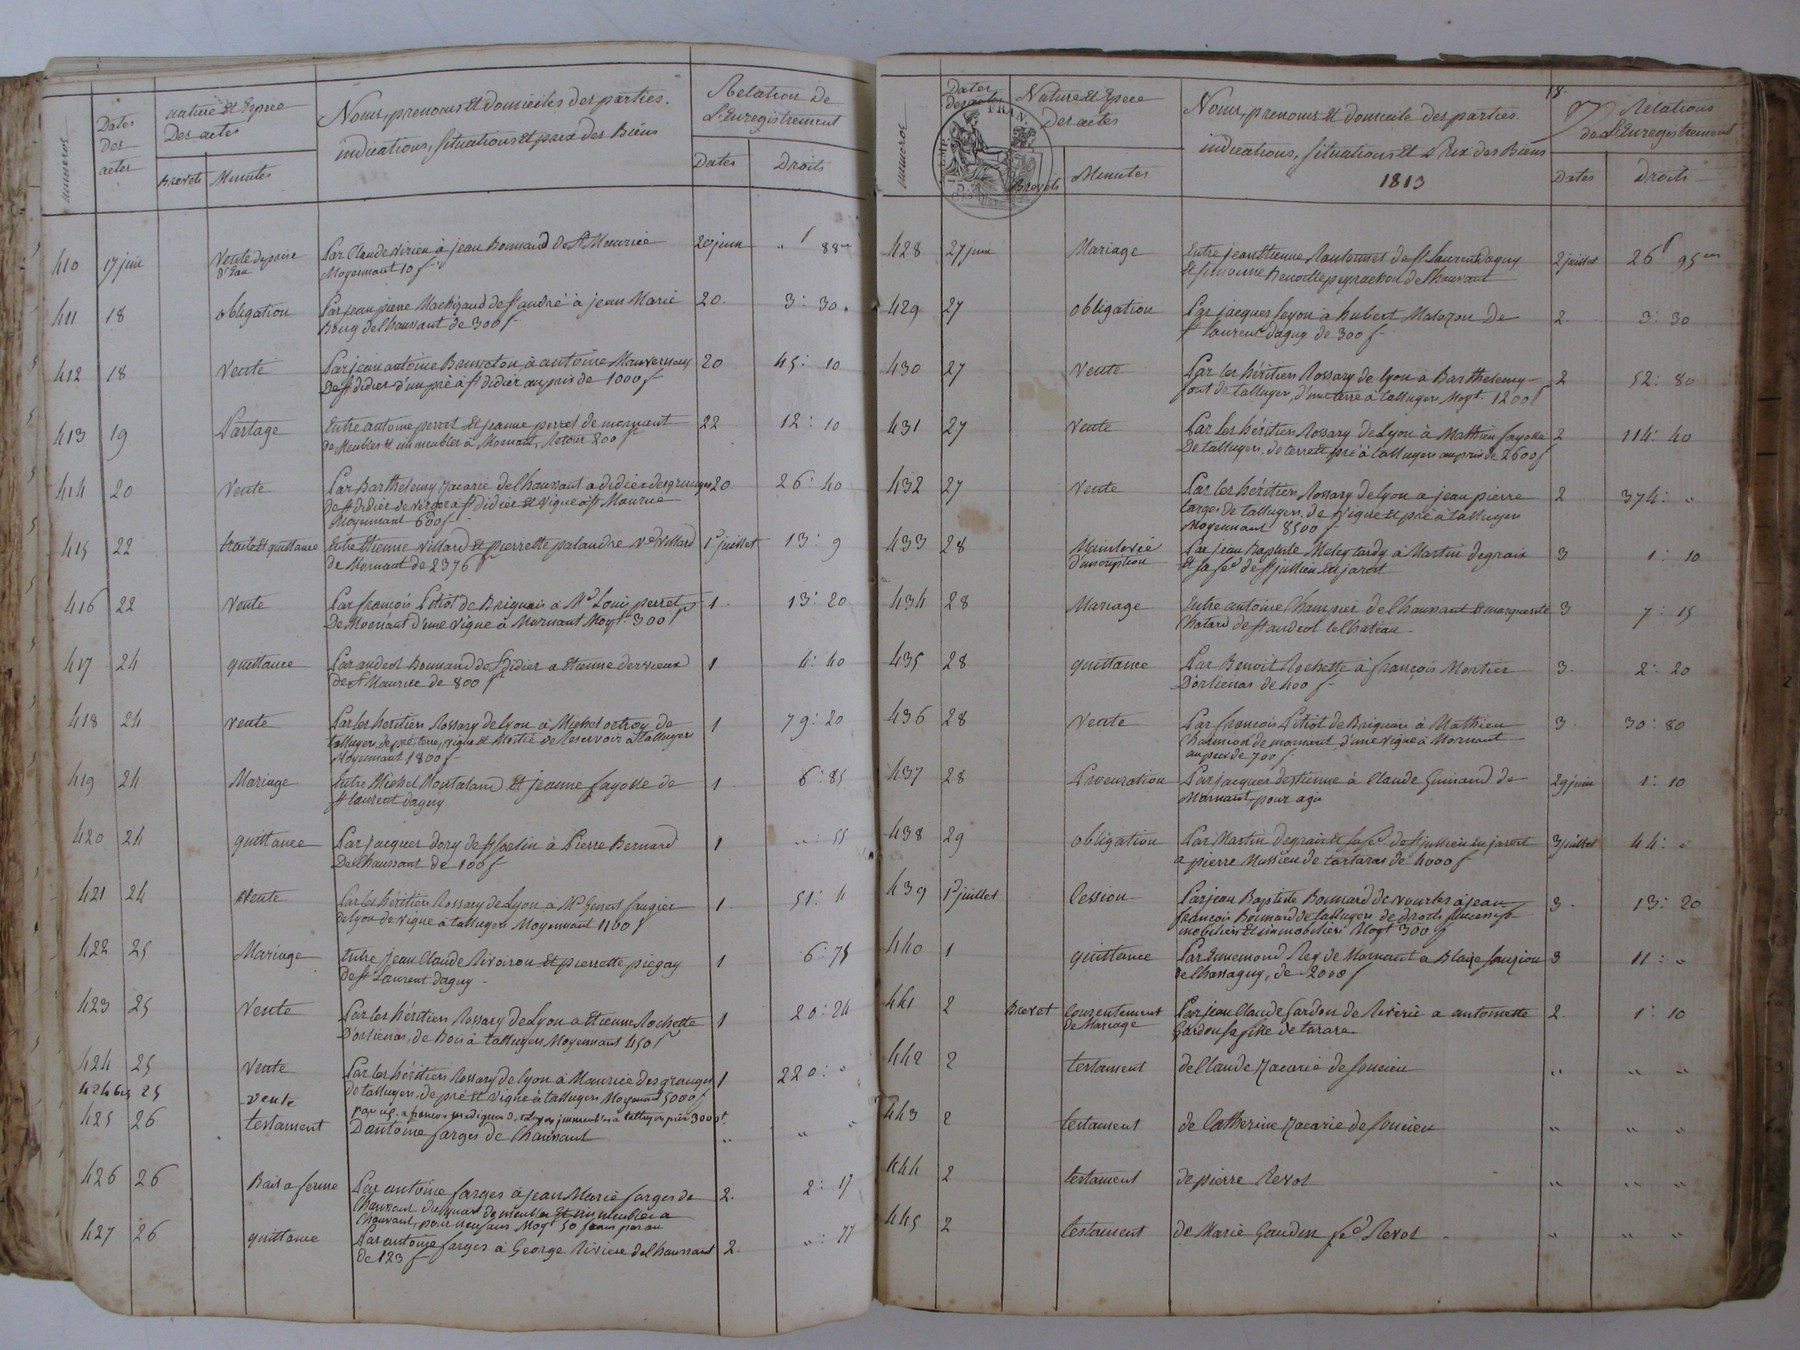 numeros
Dates
Des
actes
nature Et Espece
Des actes
Brevets
Minutes
Noms, prenoms Et domiciles des parties.
indications, Situations Et prix des Biens
Relation de
L'Enregistrement
Dates
Droits
410 17 juin Vente de prise d'Eau Par Claude à jean Bonnard de St Maurice 20 juin " f 88
Moyennant 10 f
411 18 obligation Par jean pierre de St andré à jean Marie 20 3: 30
Bourg de Chaussant de 300 f
412 18 Vente Par jean antoine à antoine 20 45: 10
De St didier d'un pré à St didier au prix de 1000 f
413 19 Partage Entre antoine perret Et jeanne perret de mornant 22 12: 10
de Meubles Et immeubles à Mornant, Retour 200 f
414 20 Vente Par Barthelemy Zacarie de Chaussant a didier desgranges 20 26: 40
de St didier de verger à St didier Et vigne à St Maurice
Moyennant 600 f
415 22 traité Et quittance Entre Etienne Villard Et pierrette palandre Ve Villard 1er juillet 13: 9
de Mornant de 2376 f
416 22 Vente Par françois Pitiot de Brignais à Mr Louis perret 1 13: 20
De Mornant d'une vigne à Mornant Moyt 300 f
417 24 quittance Par andeol Bonnand de St Didier a Etienne dervieux 1 4: 40
de St Maurice de 800 f
418 24 vente Par les heritiers Rossary de Lyon à Michel de 1 79: 20
talluyers de pré terre, vigne Et Moitié de Reservoir à talluyers
Moyennant 1800 f
419 24 Mariage Entre Michel Et jeanne fayolle de 1 6: 85
St laurent dagny
420 24 quittance Par jacques dory de à Pierre Bernard 1 " : 55
De Chaussant de 100 f
421 24 Vente Par les héritiers Rossary de Lyon a Mr 1 51: 11
de Lyon de vigne à talluyers Moyennant 1100 f
422 25 Mariage Entre jean Claude Rivoiron Et pierrette piegay 1 6: 75
De St Laurent dagny
423 25 Vente Par les héritiers Rossary de Lyon a Etienne Rochette 1 20: 24
D'orlienas, de Bois à talluyers Moyennant 450 f
424 25 Vente Par les héritiers Rossary de Lyon à Maurice desgranges 1 220: "
de talluyers, de pré Et vigne à talluyers Moyenant 5000 f
424 bis 25 vente
425 26 testament D'antoine farges de Chaussant " " "
426 26 Bail a ferme Par antoine farges à jean Marie farges de 2. 2: 17
Chaussant de meubles Et immeubles a
Chaussant, pour neuf ans Moyt 50 francs par an
427 26 quittance Par antoine farges à George Riviere de Chaussant 2. " : 77
de 123 f
numeros
Dates
des actes
Nature Et Espece
Des actes
Brevets
Minutes
TRAN.
Noms, prenoms Et domicile des parties.
indications, Situations Et Prix des Biens
1813
18.
Relations
de L'Enregistrement
Dates
droits
428 27 juin Mariage Entre jean Etienne de St Laurent dagny 2 juillet 26 f 95
de Chaussant
429 27 obligation Par jacques à hubert Malozon de 2. 3: 30
St laurent dagny de 300 f
430 27 Vente Par les héritiers Rossary de Lyon à Barthelemy 2 52: 80
font de talluyers, d'une terre à talluyers Moyt 1200 f
431 27 Vente Par les héritiers Rossary de Lyon à Mathieu fayolle 2 114: 40
De talluyers, de terre Et pré à talluyers au prix de 2600 f
432 27 Vente Par les héritiers Rossary de Lyon a jean pierre 2 374: "
farges de talluyers, de vigne Et pré à talluyers
Moyennant 8500 f
433 28 Mainlevée d'inscription Par jean Baptiste à Martin degraix 3 1: 10
Et sa fe de St jullien En jarest
434 28 Mariage Entre antoine de Chaussant Et marguerite 3 7: 15
Chatard de St andeol le Chateau
435 28 quittance Par Benoit Rochette à françois Mortier 3. 2: 20
D'orlienas de 400 f
436 28 Vente Par françois Pitiot de Brignais à Mathieu 3. 30: 80
de mornant d'une vigne à Mornant
au prix de 700 f
437 28 Procuration Par jacques destienne à Claude Guinand de 29 juin 1: 10
Mornant, pour agir
438 29 obligation Par Martin degraix Et sa fe de St jullien En jarest 3 juillet 44: "
a pierre Mussieu de tartaras de 4000 f
439 1er juillet Cession Par jean Baptiste Bonnard de vourles à jean 3. 13: 20
françois Bonnard de talluyers de droits successifs
mobiliers Et immobiliers Moyt 300 f
440 1 quittance Par Ennemond Rey de Mornant a Blaise 3 11: "
de Chassagny, de 2000 f
441 2 Brevet Consentement de Mariage Par jean Claude Gardon de Riverie a antoinette 2. 1: 10
Gardon sa fille de tarare
442 2 testament de Claude Zacarie de Soucieu " " "
443 2 testament de Catherine Zacarie de Soucieu " " "
444 2 testament de pierre Revol " " "
445 2 testament de Marie Gaudin fe Revol " " "